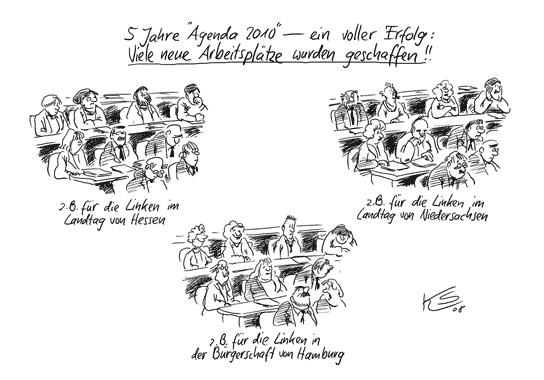 5 Jahre "Agenda 2010" — ein voller Erfolg:
Viele neue Arbeitsplätze wurden geschaffen!!
z.B. für die Linken im
Landtag von Hessen
z.B. für die Linken im
Landtag von Niedersachsen
z.B. für die Linken in
der Bürgerschaft von Hamburg
08